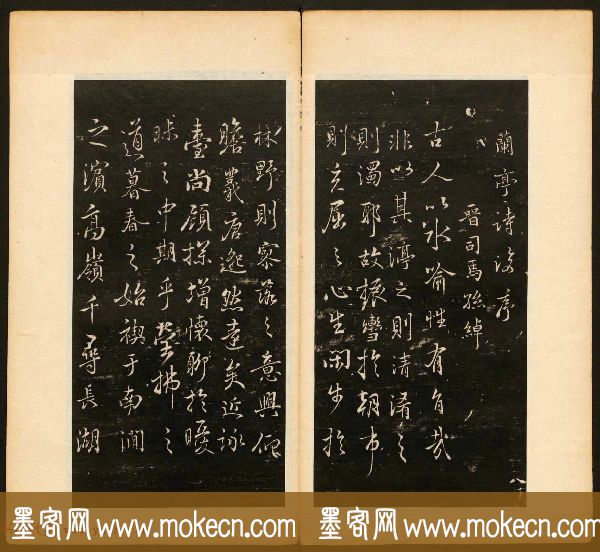 蘭亭诗後序
晉司馬孫綽
古人以水喻性有旨哉
非以其渟之則清淆之
則濁耶故振轡於朝市
則充屈之心生閒步於
八
林野則寥落之意興仰
瞻羲唐邈然遠矣近詠
臺尚顧探增懷聊於曖
昧之中期乎縈拂之
道暮春之始禊于南澗
之濱高嶺千尋長湖
墨客网 www.mokecn.com
墨客网 www.mokecn.com